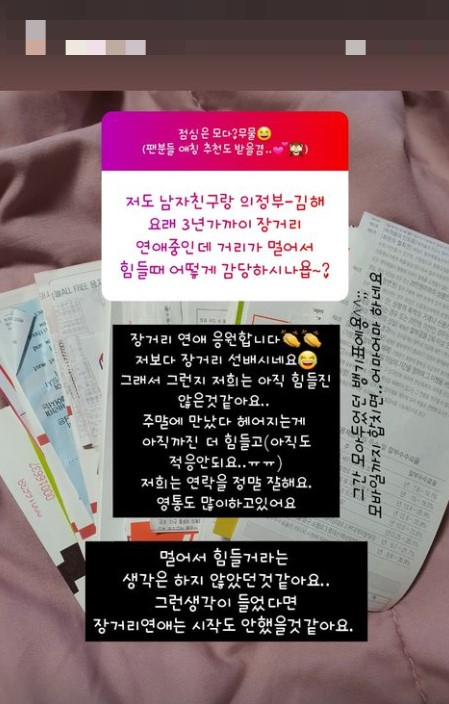 점심은 모다?무물😆
(팬분들 애칭 추천도 받을겸..💕🙈)
저도 남자친구랑 의정부-김해
요래 3년가까이 장거리
연애중인데 거리가 멀어서
힘들때 어떻게 감당하시나욥~?
장거리 연애 응원합니다👏👏
저보다 장거리 선배시네요😅
그래서 그런지 저희는 아직 힘들진
않은것같아요..
주말에 만났다 헤어지는게
아직까진 더 힘들고(아직도
적응안되요..ㅠㅠ)
저희는 연락을 정말 잘해요.
영통도 많이하고있어요
멀어서 힘들거라는
생각은 하지 않았던것같아요..
그런생각이 들었다면
장거리연애는 시작도 안했을것같아요.
그간 모아두었던 뱅기표에요^^;;
모바일까지 합치면..어마어마 하네요